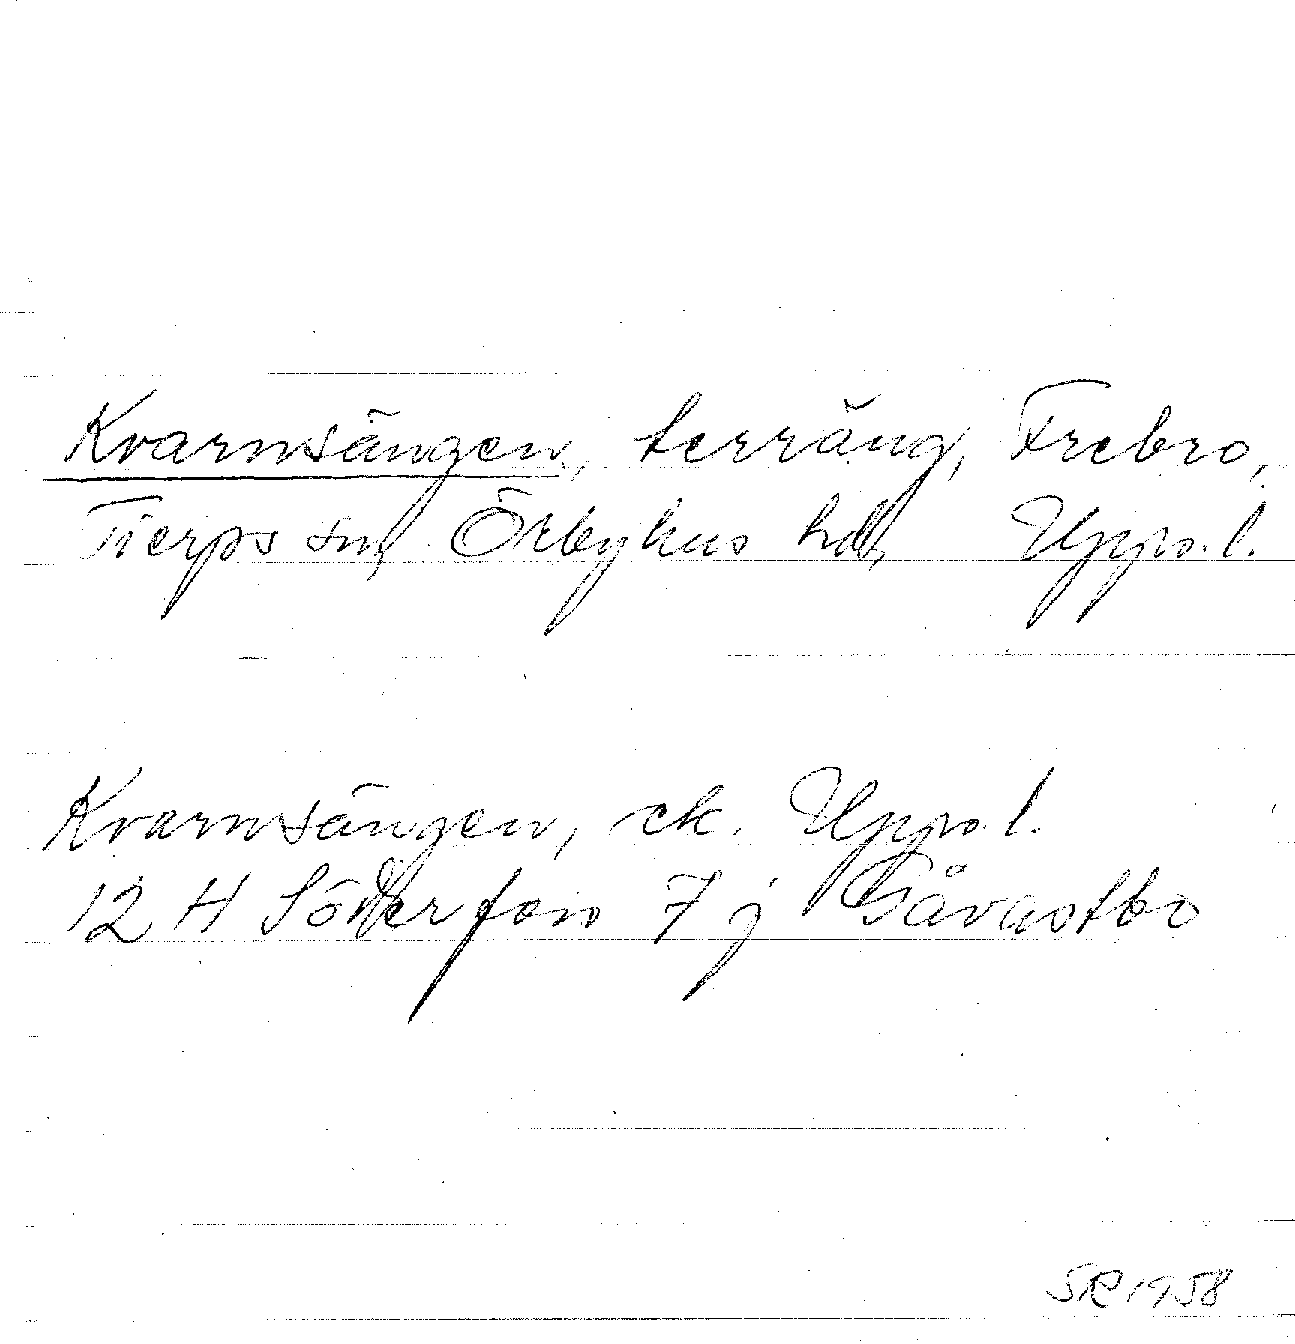 Kvarnsängen, terräng, Frebro,
Tierps sn, Örbyhus hd, Uppl.
Kvarnsängen, ek. Uppl.
12 H Söderfors 7 j Gåvastbo
SR 1958